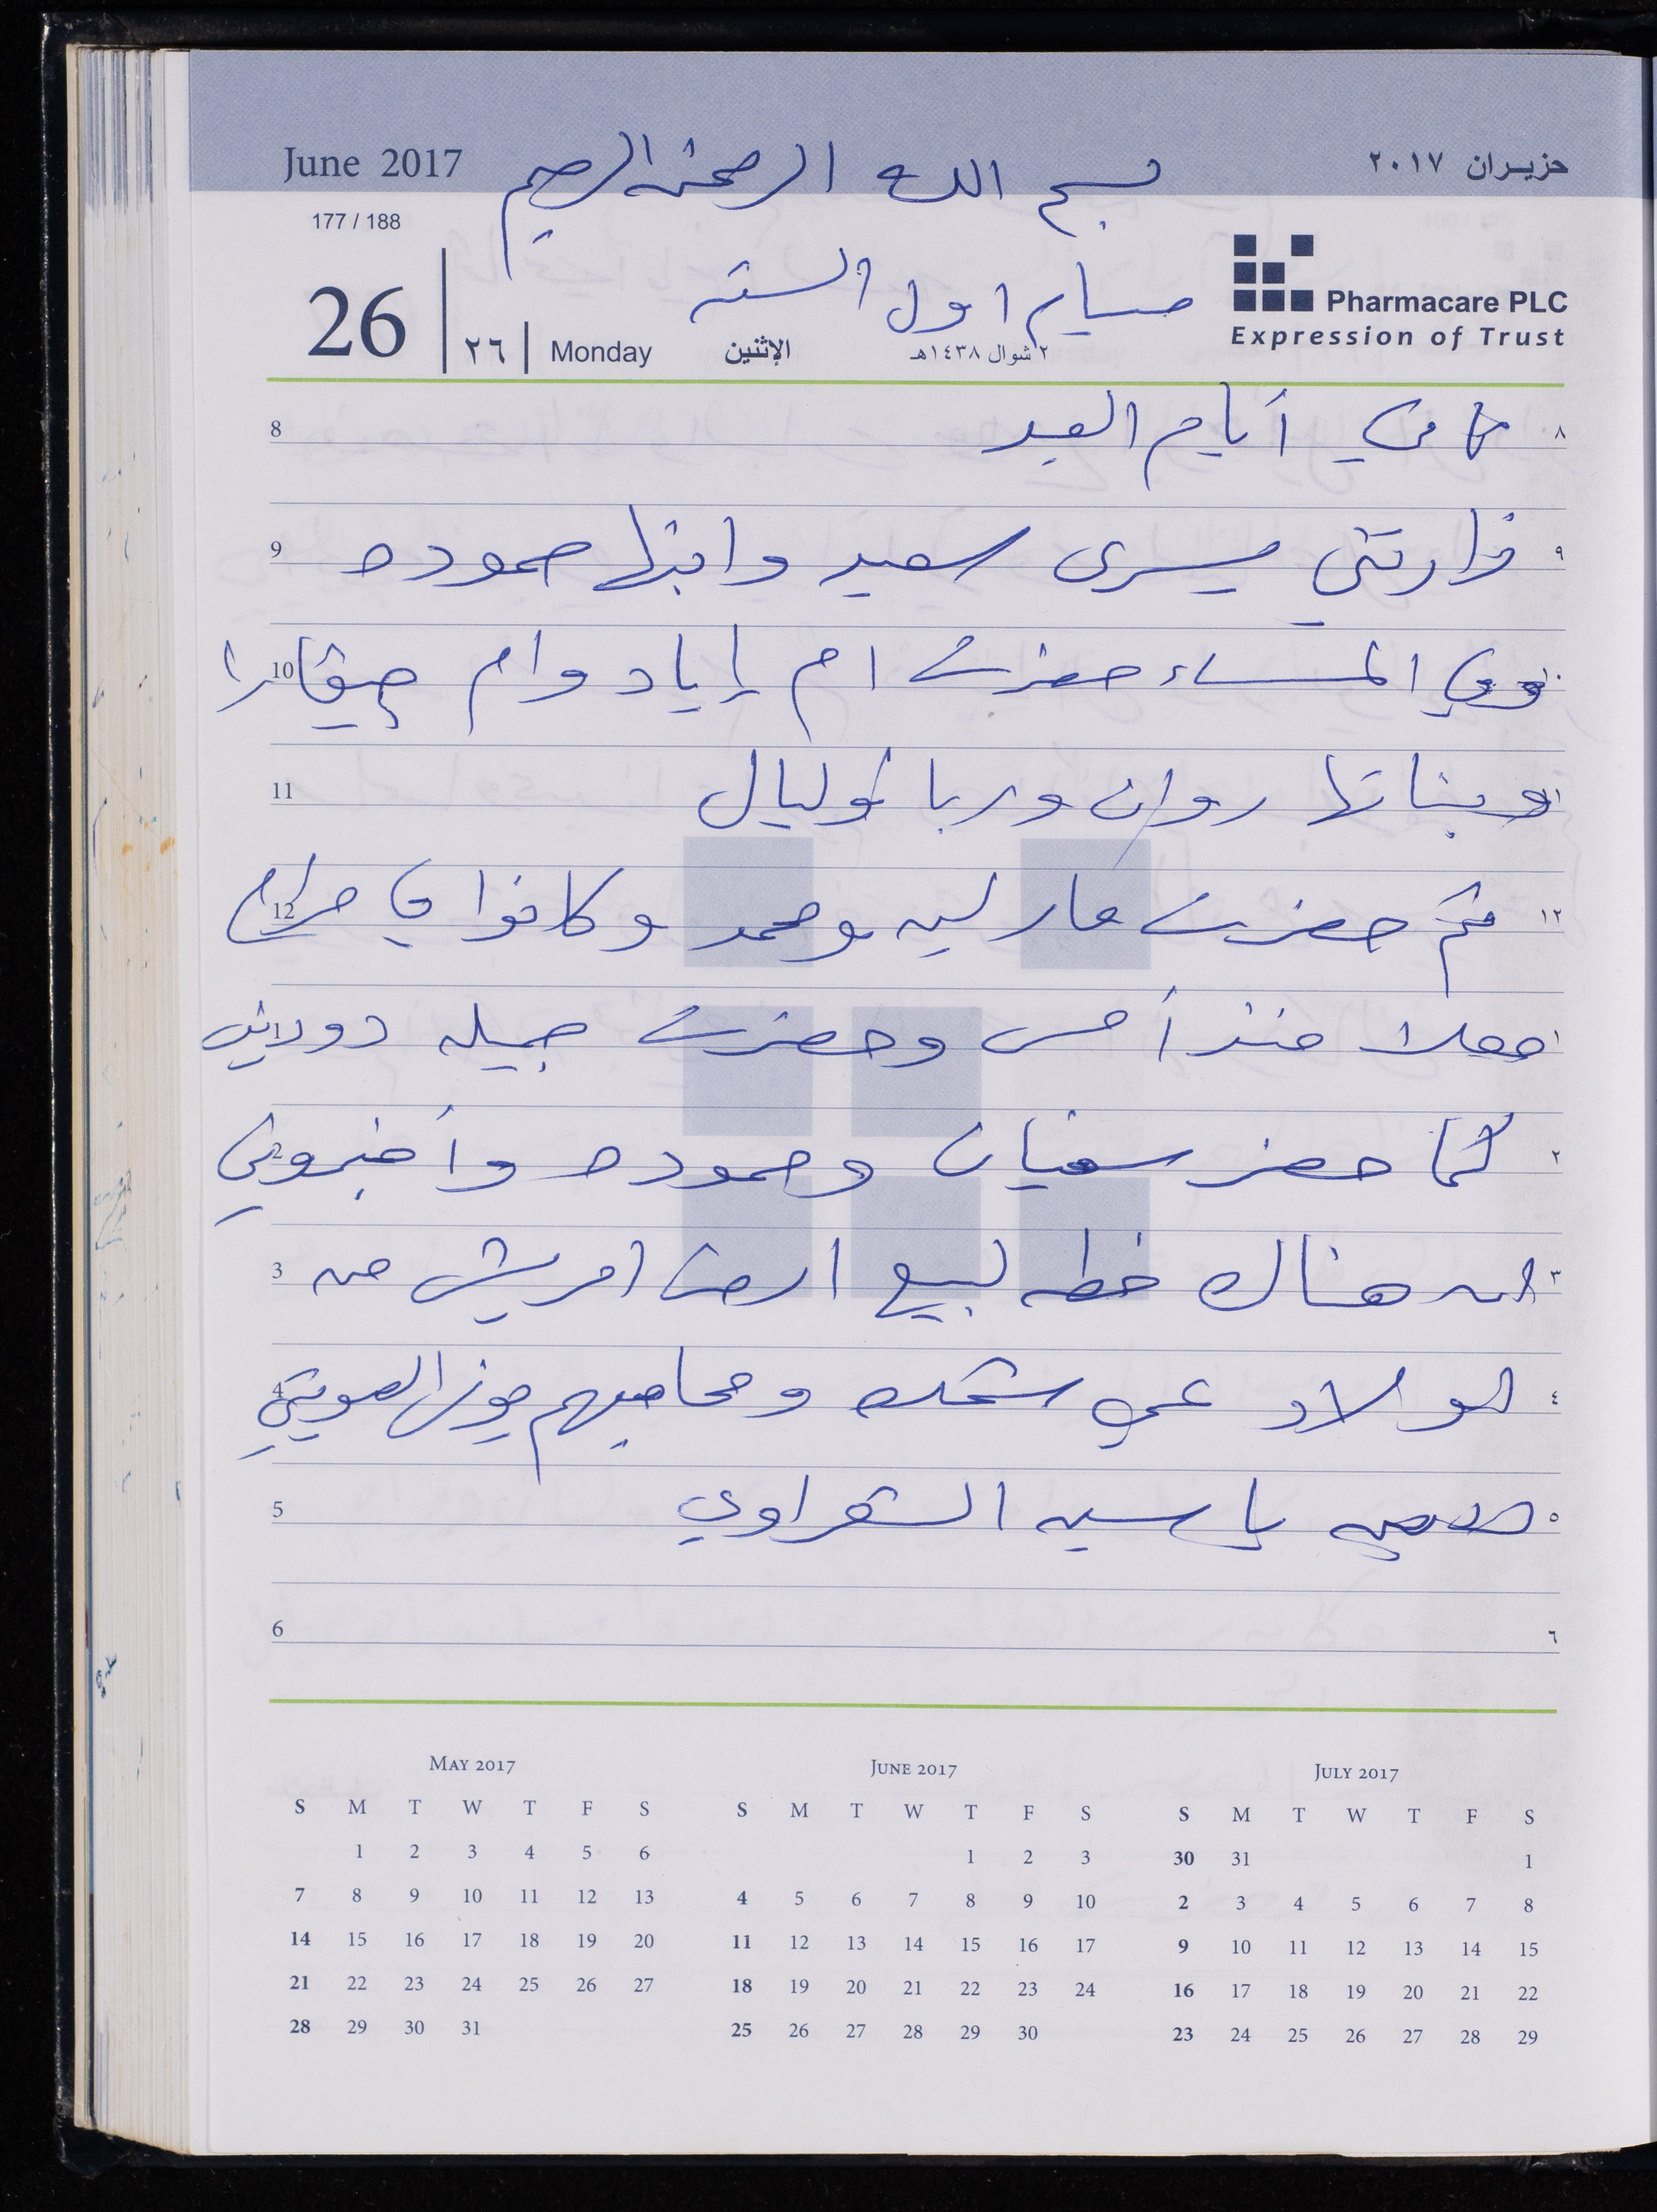 June 2017
بسم الله الرحمن الرحيم
حزيران ٢٠١٧
177 / 188
26
٢٦
Monday
الإثنين
٢ شوال ١٤٣٨هـ
صيام اول الستة
Pharmacare PLC
Expression of Trust
8 ثاني أيام العيد ٨
9 زارتني يسرى سعيد وابنها حموده ٩
10 وفي المساء حضرت ام إياد وام
11 وبناتها روان وربا وليال
12 ثم حضرت مارلين ومحمد وكانوا في ١٢
منذ أمس وحضرت جميله
2 كما حضر سفيان وحموده وأخبروني ٢
3 ان هناك خطه لبيع ارض امريش من ٣
4 اولاد عمي ومحاميهم ٤
5 ياسين الشعراوي ٥
6 ٦
MAY 2017
S M T W T F S
1 2 3 4 5 6
7 8 9 10 11 12 13
14 15 16 17 18 19 20
21 22 23 24 25 26 27
28 29 30 31
JUNE 2017
S M T W T F S
1 2 3
4 5 6 7 8 9 10
11 12 13 14 15 16 17
18 19 20 21 22 23 24
25 26 27 28 29 30
JULY 2017
S M T W T F S
30 31 1
2 3 4 5 6 7 8
9 10 11 12 13 14 15
16 17 18 19 20 21 22
23 24 25 26 27 28 29